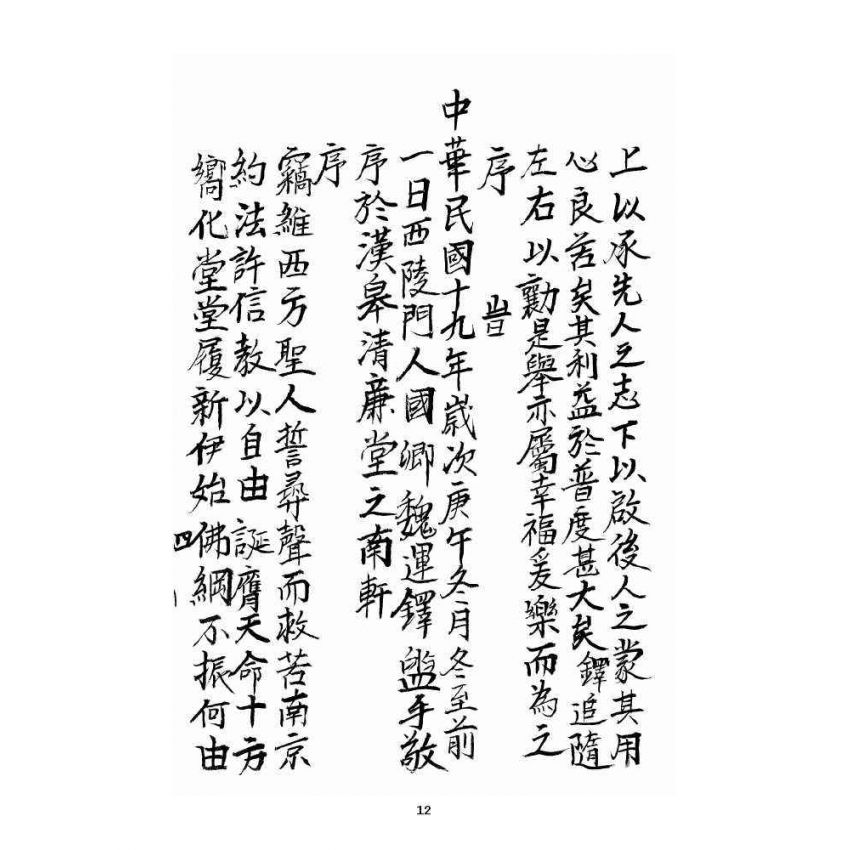 上以承先人之志下以啟後人之蒙其用
心良苦矣其利益於普度甚大矣鐸追隨
左右以勷是舉亦屬幸福爰樂而為之
序
旹
中華民國十九年歲次庚午冬月冬至前
一日西陵門人國卿魏運鐸盥手敬
序於漢皋清廉堂之南軒
序
竊維西方聖人誓尋聲而救苦南京
約法許信教以自由誕膺天命十方
嚮化堂堂履新伊始佛綱不振何由
四
12